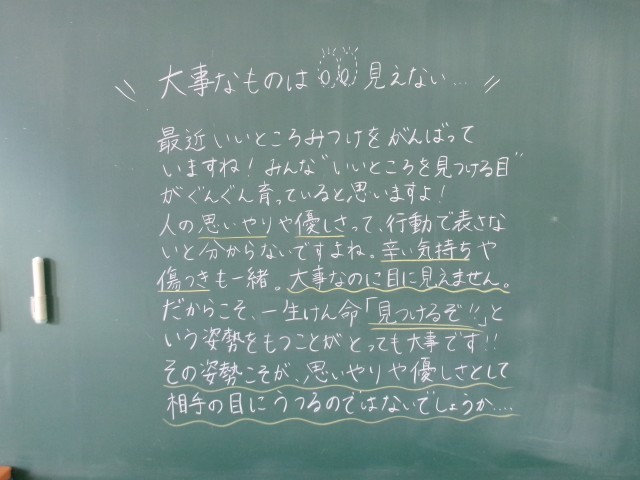 大事なものは 見えない…
最近いいところみつけをがんばって
いますね！みんな"いいところを見つける目"
がぐんぐん育っていると思いますよ！
人の思いやりや優しさって、行動で表さな
いと分からないですよね。辛い気持ちや
傷つきも一緒。大事なのに目に見えません。
だからこそ、一生けん命「見つけるぞ!!」と
いう姿勢をもつことがとっても大事です!!
その姿勢こそが、思いやりや優しさとして
相手の目にうつるのではないでしょうか….